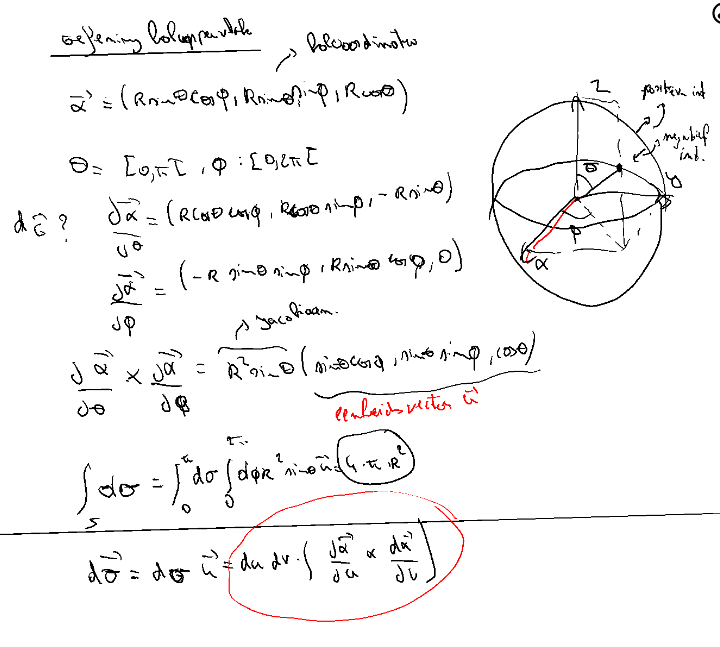 oefening boloppervlak
→ bolcoordinaten
α⃗ = (R sinθ cosφ, R sinθ sinφ, R cosθ)
θ = [0,π[ , φ : [0,2π[
dσ⃗ ? ∂α⃗/∂θ = (R cosθ cosφ, R cosθ sinφ, - R sinθ)
∂α⃗/∂φ = (-R sinθ sinφ, R sinθ cosφ, 0)
→ Jacobiaan.
∂α⃗/∂θ × ∂α⃗/∂φ = R² sinθ (sinθ cosφ, sinθ sinφ, cosθ)
eenheidsvector u⃗
∫_S dσ = ∫_0^π dσ ∫_0 dφ R² sinθ u⃗ = 4·π·R²
dσ⃗ = dσ u⃗ = du dv·( ∂α⃗/∂u × dα⃗/∂v )
Z
positieve int
negatief int.
θ
y
φ
x